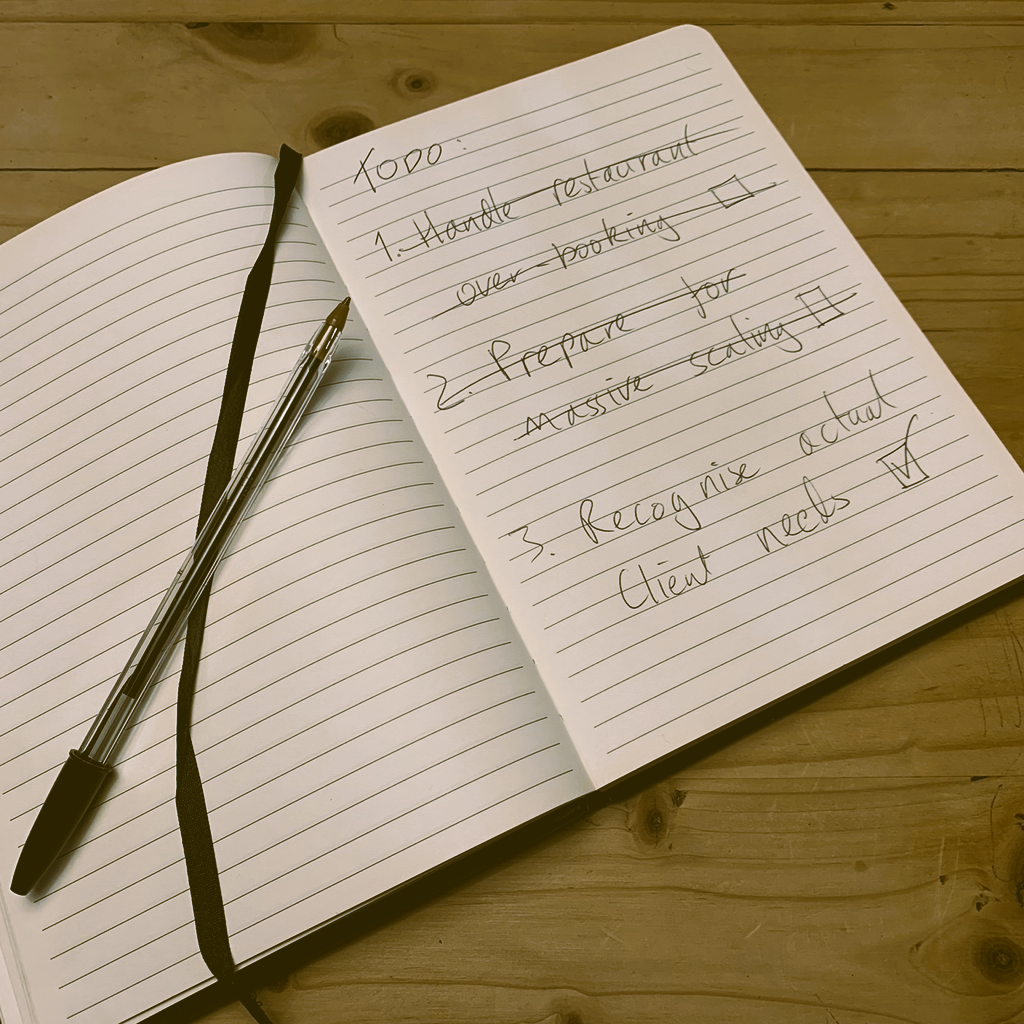 TODO:
1. Handle restaurant
over-booking
2. Prepare for
massive scaling
3. Recognise actual
Client needs